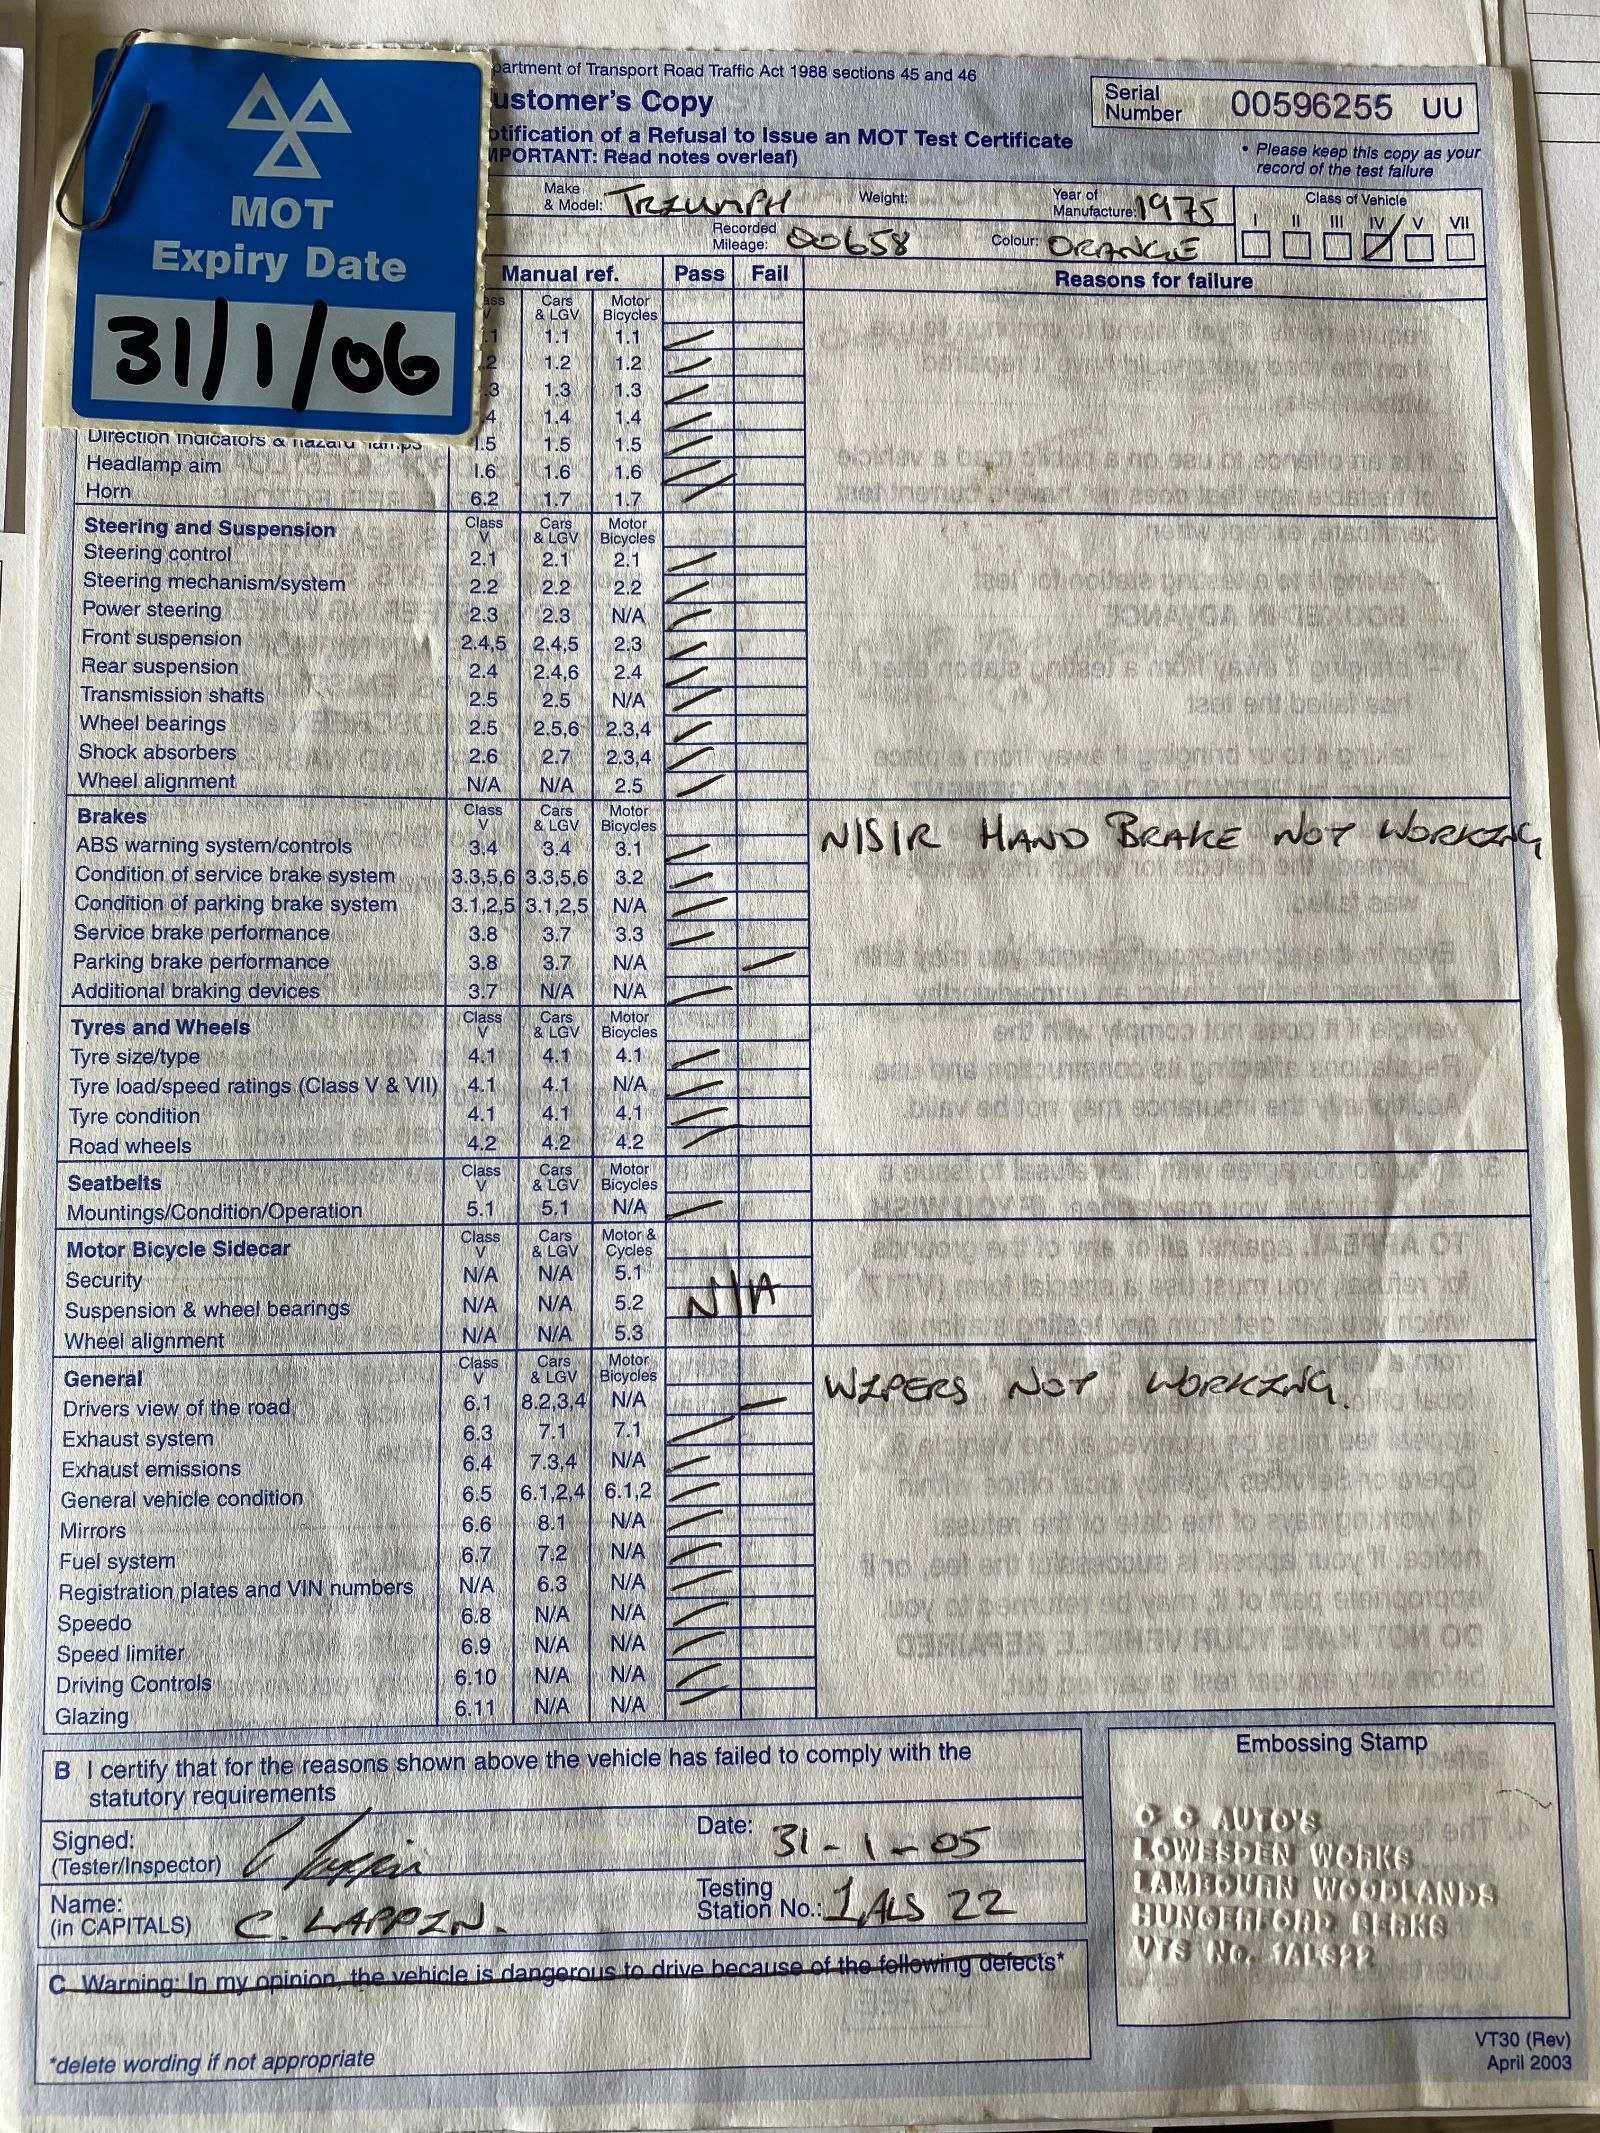 MOT
Expiry Date
31/1/06
partment of Transport Road Traffic Act 1988 sections 45 and 46
ustomer's Copy
otification of a Refusal to Issue an MOT Test Certificate
MPORTANT: Read notes overleaf)
Serial Number 00596255 UU
• Please keep this copy as your record of the test failure
Make & Model: TRIUMPH Weight: Year of Manufacture: 1975
Recorded Mileage: 00658 Colour: ORANGE
Class of Vehicle
I II III IV V VII
Manual ref. Pass Fail Reasons for failure
ass V Cars & LGV Motor Bicycles
.1 1.1 1.1
.2 1.2 1.2
.3 1.3 1.3
.4 1.4 1.4
Direction indicators & hazard lamps 1.5 1.5 1.5
Headlamp aim 1.6 1.6 1.6
Horn 6.2 1.7 1.7
Steering and Suspension Class V Cars & LGV Motor Bicycles
Steering control 2.1 2.1 2.1
Steering mechanism/system 2.2 2.2 2.2
Power steering 2.3 2.3 N/A
Front suspension 2.4,5 2.4,5 2.3
Rear suspension 2.4 2.4,6 2.4
Transmission shafts 2.5 2.5 N/A
Wheel bearings 2.5 2.5,6 2.3,4
Shock absorbers 2.6 2.7 2.3,4
Wheel alignment N/A N/A 2.5
Brakes Class V Cars & LGV Motor Bicycles
N/S/R HAND BRAKE NOT WORKING
ABS warning system/controls 3.4 3.4 3.1
Condition of service brake system 3.3,5,6 3.3,5,6 3.2
Condition of parking brake system 3.1,2,5 3.1,2,5 N/A
Service brake performance 3.8 3.7 3.3
Parking brake performance 3.8 3.7 N/A
Additional braking devices 3.7 N/A N/A
Tyres and Wheels Class V Cars & LGV Motor Bicycles
Tyre size/type 4.1 4.1 4.1
Tyre load/speed ratings (Class V & VII) 4.1 4.1 N/A
Tyre condition 4.1 4.1 4.1
Road wheels 4.2 4.2 4.2
Seatbelts Class V Cars & LGV Motor Bicycles
Mountings/Condition/Operation 5.1 5.1 N/A
Motor Bicycle Sidecar Class V Cars & LGV Motor & Cycles
Security N/A N/A 5.1
Suspension & wheel bearings N/A N/A 5.2 N/A
Wheel alignment N/A N/A 5.3
General Class V Cars & LGV Motor Bicycles
WIPERS NOT WORKING.
Drivers view of the road 6.1 8.2,3,4 N/A
Exhaust system 6.3 7.1 7.1
Exhaust emissions 6.4 7.3,4 N/A
General vehicle condition 6.5 6.1,2,4 6.1,2
Mirrors 6.6 8.1 N/A
Fuel system 6.7 7.2 N/A
Registration plates and VIN numbers N/A 6.3 N/A
Speedo 6.8 N/A N/A
Speed limiter 6.9 N/A N/A
Driving Controls 6.10 N/A N/A
Glazing 6.11 N/A N/A
B I certify that for the reasons shown above the vehicle has failed to comply with the
statutory requirements
Signed:
(Tester/Inspector)
Date: 31-1-05
Name:
(in CAPITALS) C. LAPPIN.
Testing Station No.: 1ALS 22
C Warning: In my opinion, the vehicle is dangerous to drive because of the following defects*
*delete wording if not appropriate
Embossing Stamp
AUTO'S
LOWESDEN WORKS
LAMBOURN WOODLANDS
HUNGERFORD BERKS
VTS No. 1ALS22
VT30 (Rev)
April 2003